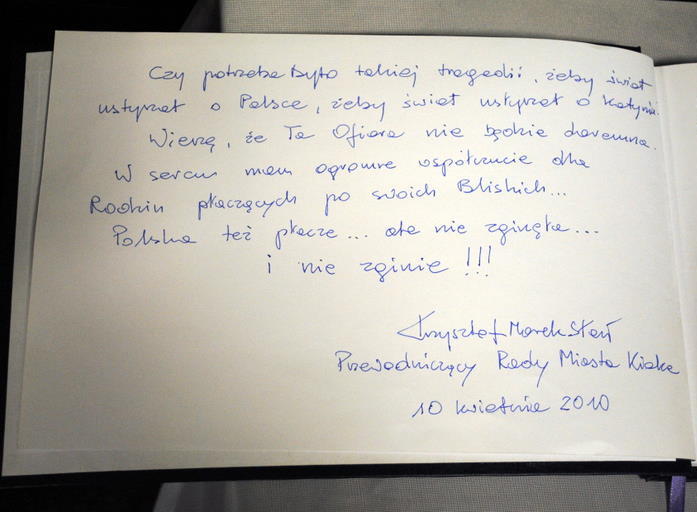 Czy potrzeba było takiej tragedii, żeby świat
usłyszał o Polsce, żeby świat usłyszał o Katyniu.
Wierzę, że Ta Ofiara nie będzie daremna.
W sercu mam ogromne współczucie dla
Rodzin płaczących po swoich Bliskich...
Polska też płacze... ale nie zginęła...
i nie zginie !!!
Krzysztof Marek Słoń
Przewodniczący Rady Miasta Kielce
10 kwietnia 2010